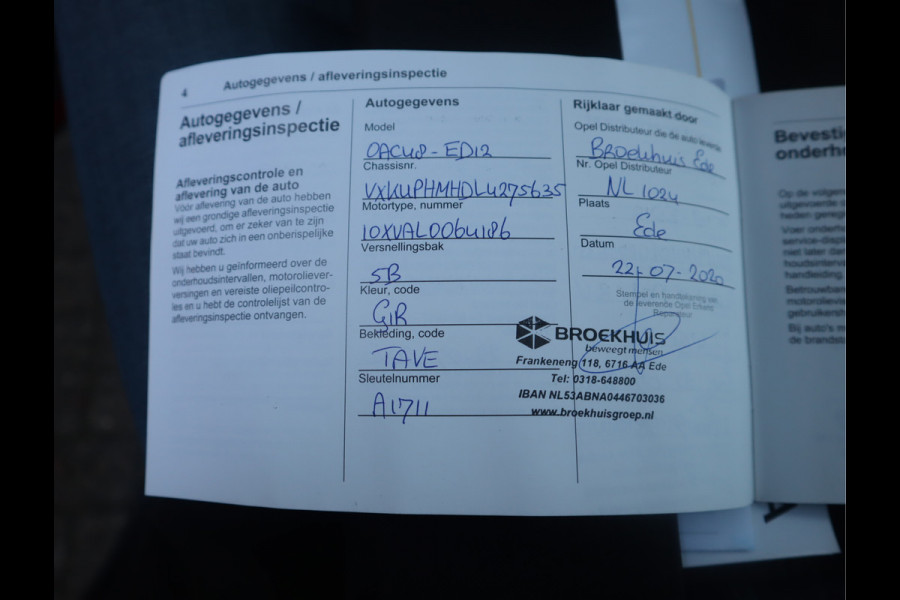 4 Autogegevens / afleveringsinspectie
Autogegevens /
afleveringsinspectie
Afleveringscontrole en
aflevering van de auto
Vóór aflevering van de auto hebben
wij een grondige afleveringsinspectie
uitgevoerd, om er zeker van te zijn
dat uw auto zich in een onberispelijke
staat bevindt.
Wij hebben u geïnformeerd over de
onderhoudsintervallen, motoroliever-
versingen en vereiste oliepeilcontro-
les en u hebt de controlelijst van de
afleveringsinspectie ontvangen.
Autogegevens
Model
OACU8-ED12
Chassisnr.
VXKUPHMHDL4275635
Motortype, nummer
10XVAL0064186
Versnellingsbak
5B
Kleur, code
G1R
Bekleding, code
TAVE
Sleutelnummer
A1711
Rijklaar gemaakt door
Opel Distributeur die de auto leverde
Broekhuis Ede
Nr. Opel Distributeur
NL 1024
Plaats
Ede
Datum
22-07-2020
Stempel en handtekening van
de leverende Opel Erkend
Reparateur
BROEKHUIS
beweegt mensen
Frankeneng 118, 6716 AA Ede
Tel: 0318-648800
IBAN NL53ABNA0446703036
www.broekhuisgroep.nl
Bevesti
onderh
Op de volgen
uitgevoerde o
heden geregi
Voer onderh
service-displ
niet later dan
houdsinterva
handleiding.
Betrouwbar
motorolievis
gebruikersh
Bij auto's m
de brandst